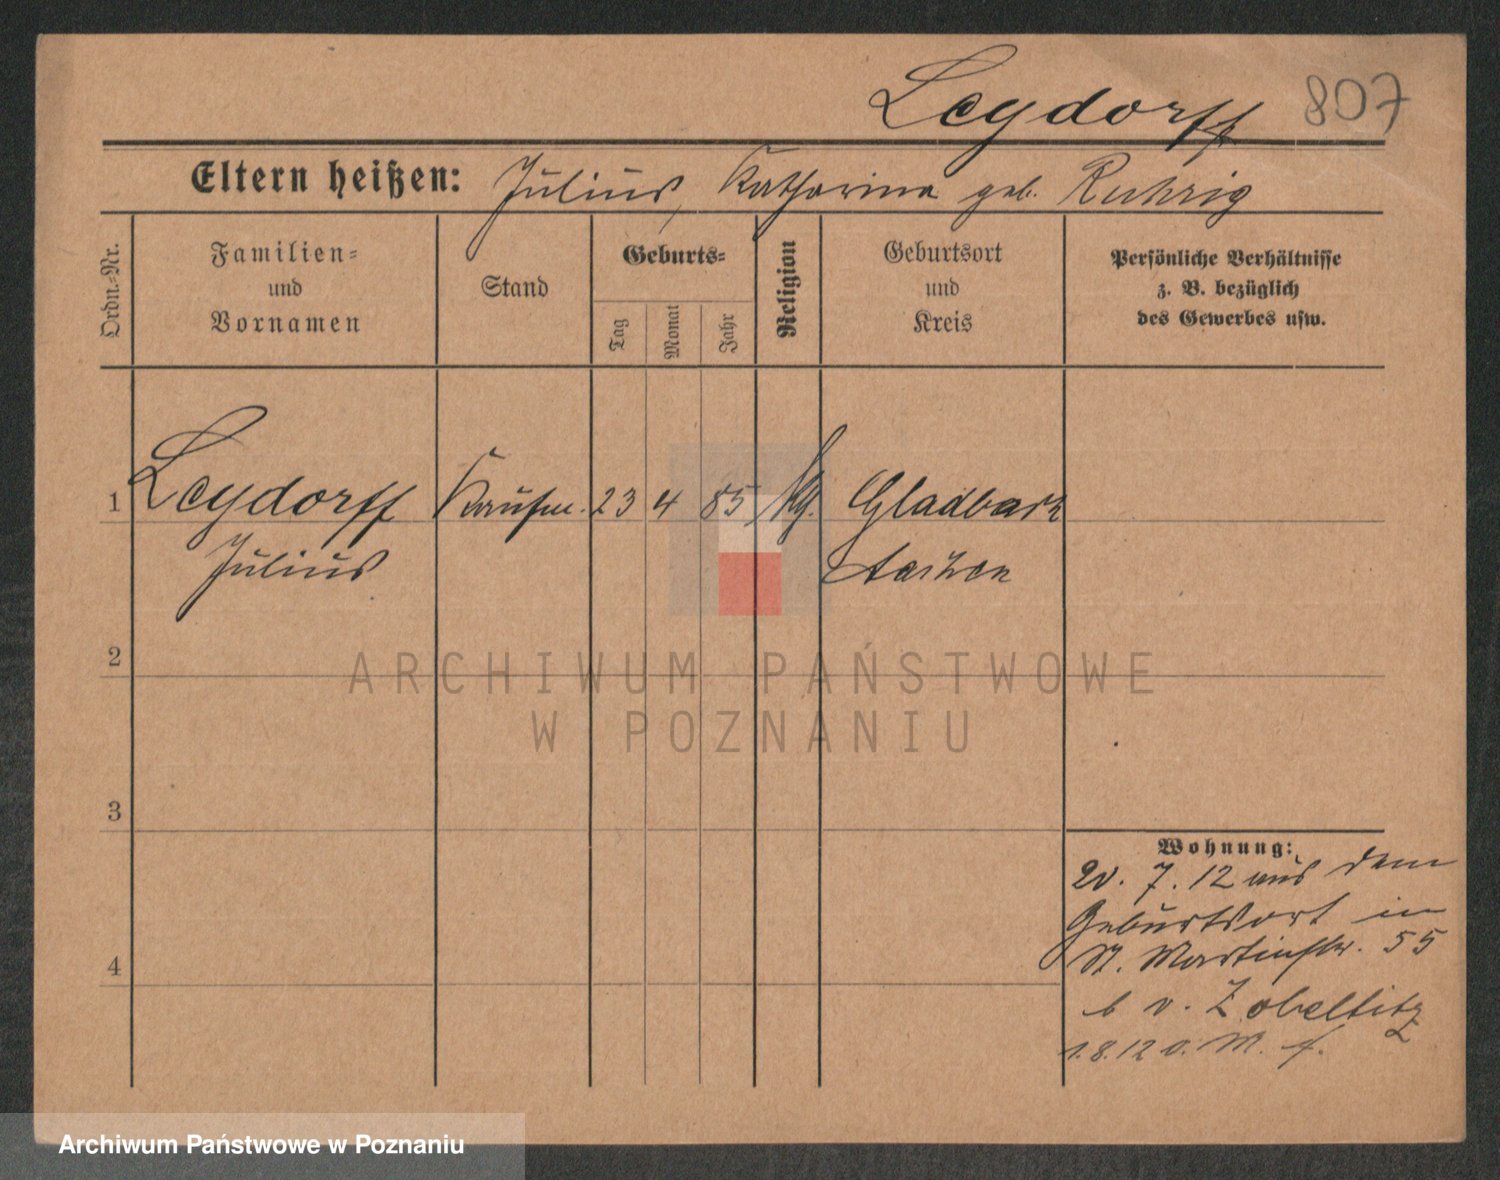 Leydorff 807
Eltern heißen: Julius, Katharina geb. Ruhrig
Ordn.-Nr.
Familien-
und
Vornamen
Stand
Geburts-
Tag
Monat
Jahr
Religion
Geburtsort
und
Kreis
Persönliche Verhältnisse
z. B. bezüglich
des Gewerbes usw.
1 Leydorff Kaufm. 23 4 85 Gladbach
Julius Aachen
2
ARCHIWUM PAŃSTWOWE
W POZNANIU
3
Wohnung:
20. 7. 12 aus dem
Geburtsort in
St. Martinstr. 55
b v. Zobeltitz
1.8.12
4
Archiwum Państwowe w Poznaniu